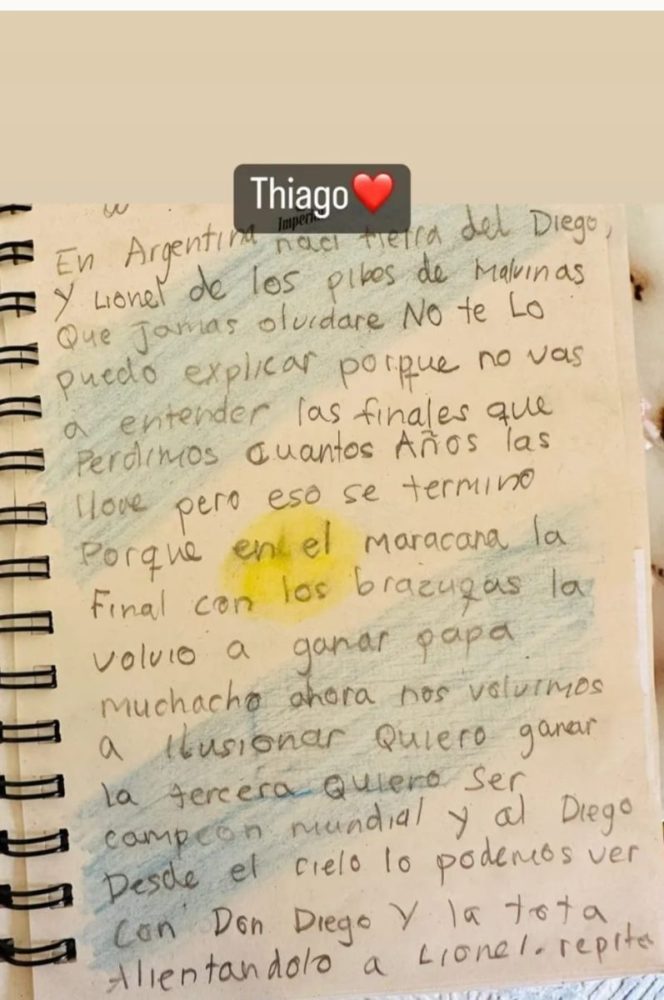 Thiago❤️
En Argentina naci tierra del Diego,
Y Lionel de los pibes de Malvinas
Que Jamas olvidare No te Lo
puedo explicar porque no vas
a entender las finales que
Perdimos Cuantos Años las
llore pero eso se termino
Porque en el maracana la
Final con los brazugas la
volvio a ganar papa
muchacho ahora nos volvimos
a Ilusionar Quiero ganar
la tercera Quiero Ser
campeon mundial y al Diego
Desde el cielo lo podemos ver
Con Don Diego Y la tota
Alientandolo a Lionel. repite